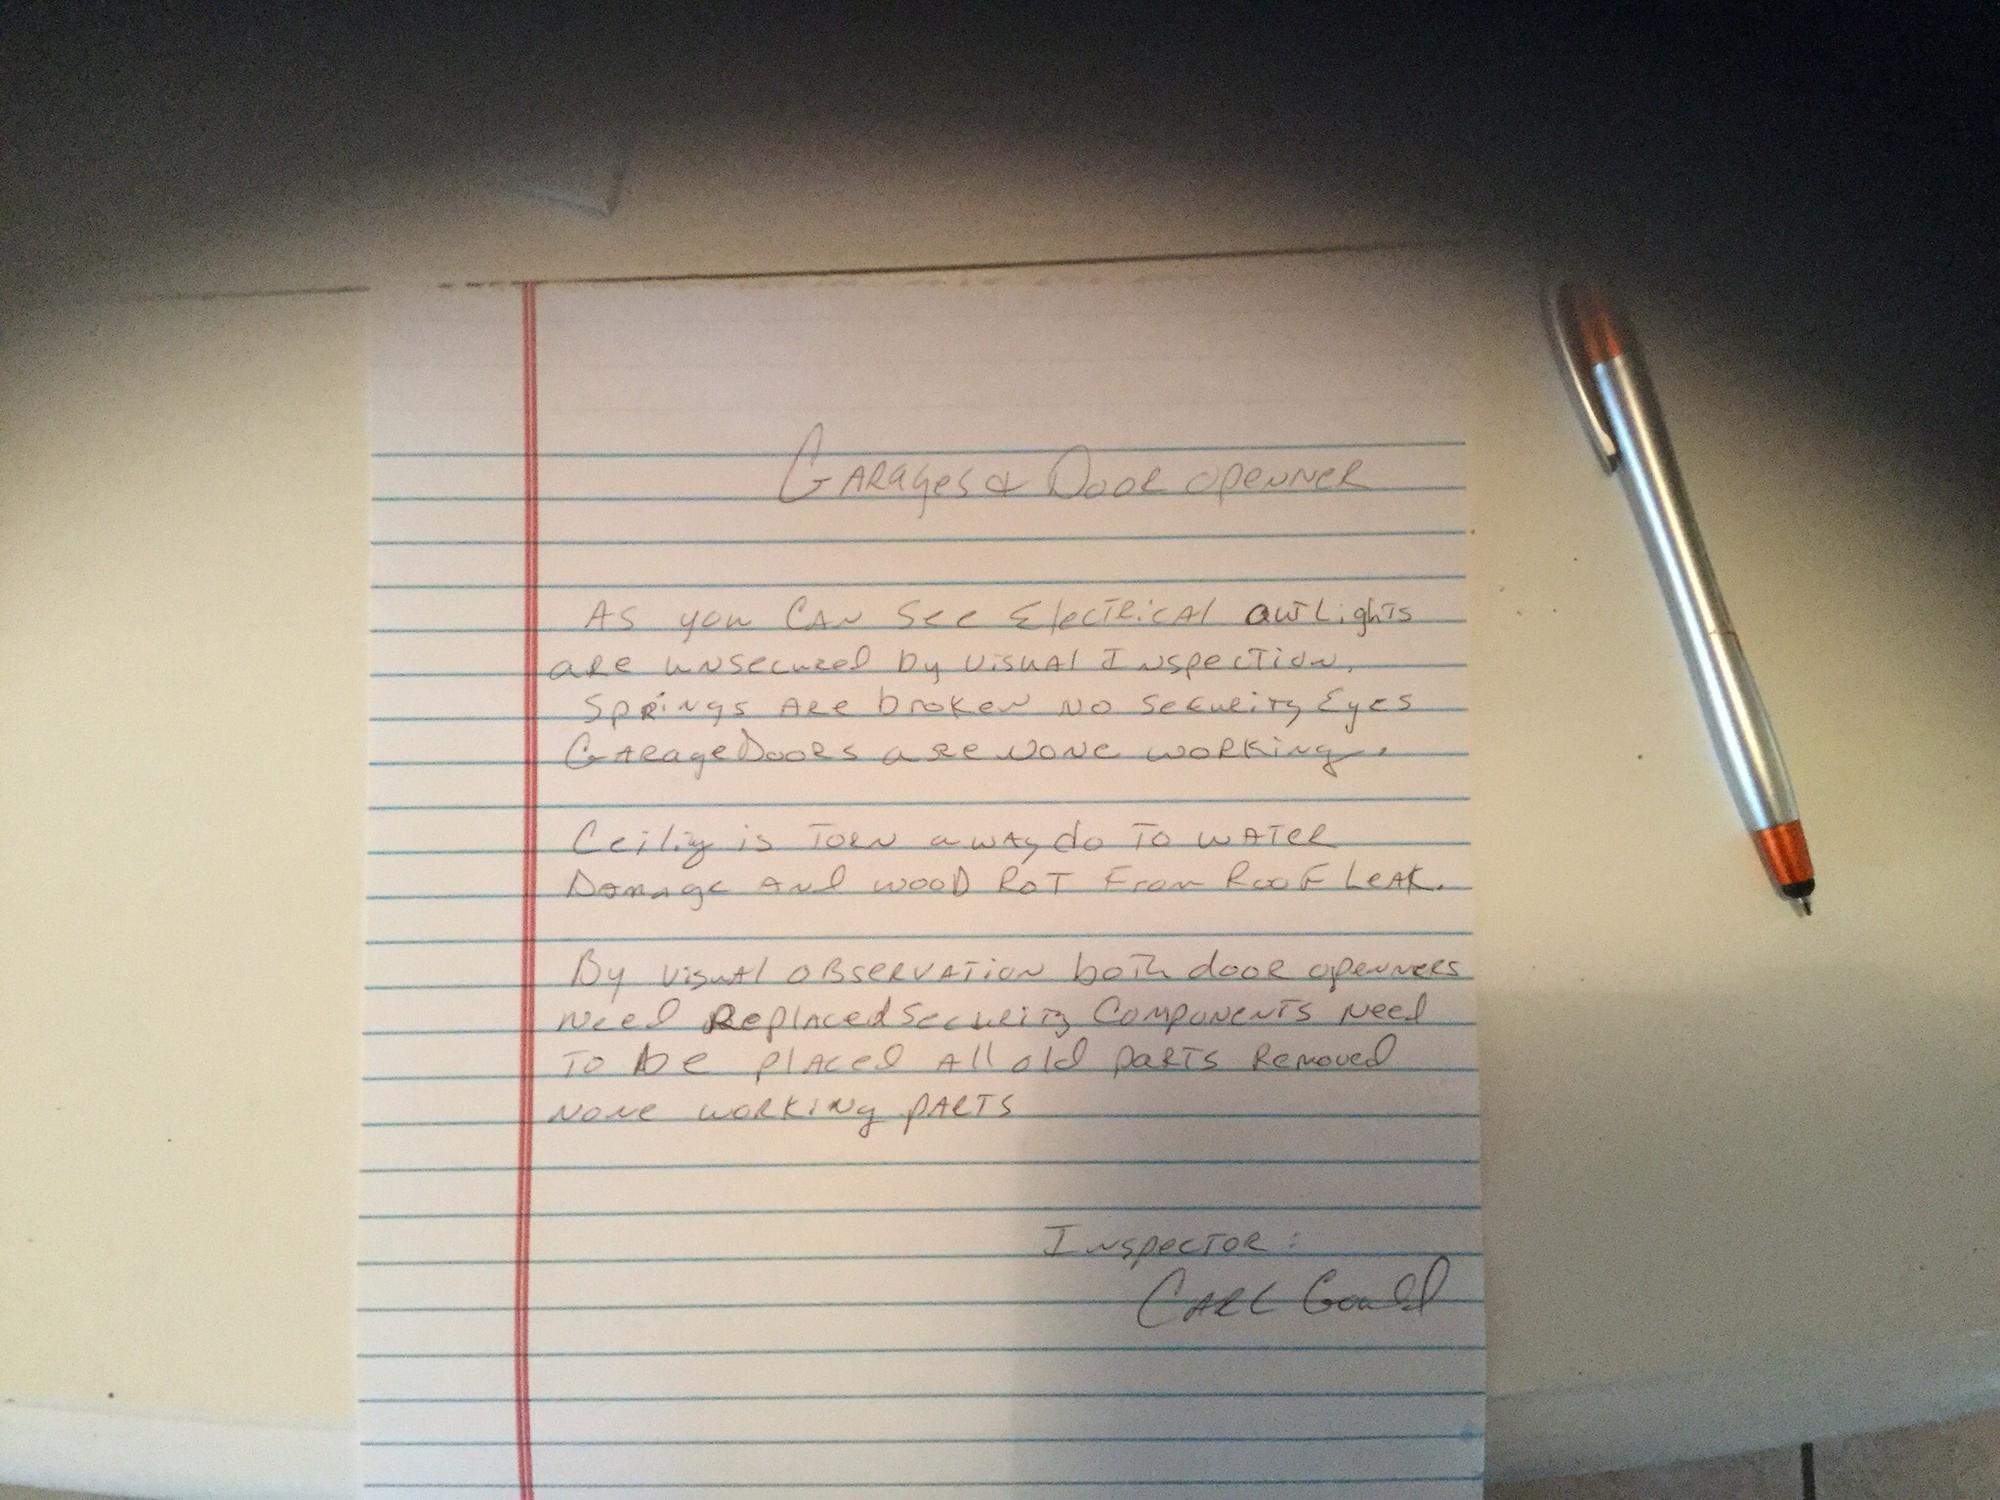 Garages & Door openner
As you can see Electrical outLights
are unsecured by visual Inspection,
Springs are broken no security Eyes
Garage Doors are none working.
Ceilig is torn away do to water
Damage and wood Rot From Roof Leak.
By visual observation both door openners
need Replaced Security Components need
to be placed all old parts Removed
none working parts
Inspector:
Carl Gould